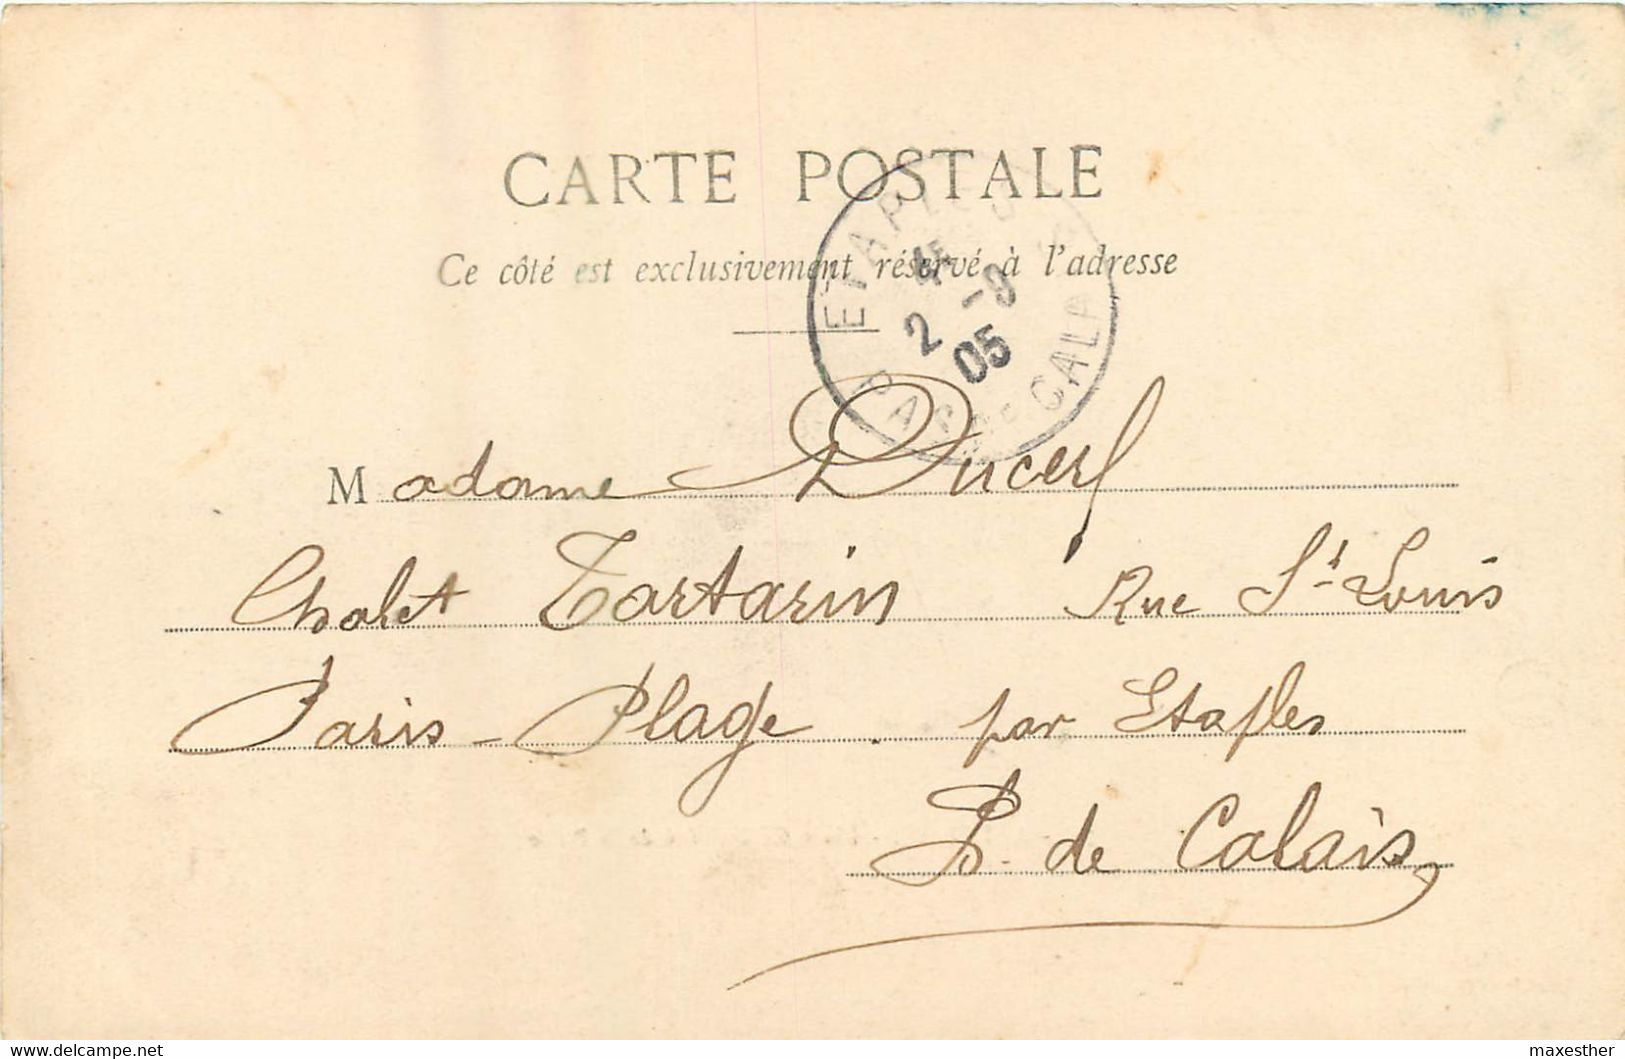 CARTE POSTALE
Ce côté est exclusivement réservé à l'adresse
ETAPLES
4E
2 -9
05
PAS DE CALAIS
Madame Ducerf
Chalet Tartarin Rue St Louis
Paris-Plage. par Etaples
P. de Calais
www.delcampe.net
maxesther